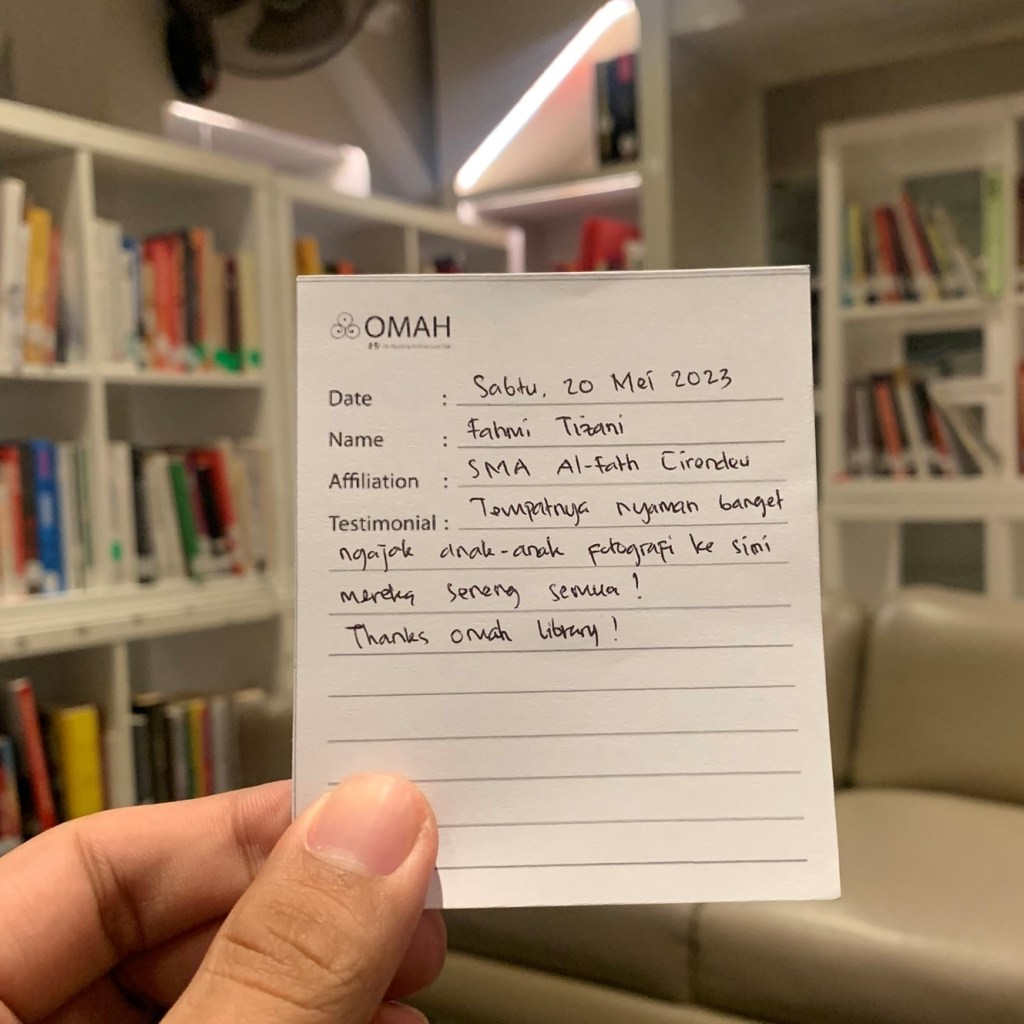 OMAH
Date : Sabtu, 20 Mei 2023
Name : Fahmi Tizani
Affiliation : SMA Al-fath Cirendeu
Testimonial : Tempatnya nyaman banget
ngajak anak-anak fotografi ke sini
mereka seneng semua!
Thanks omah library!